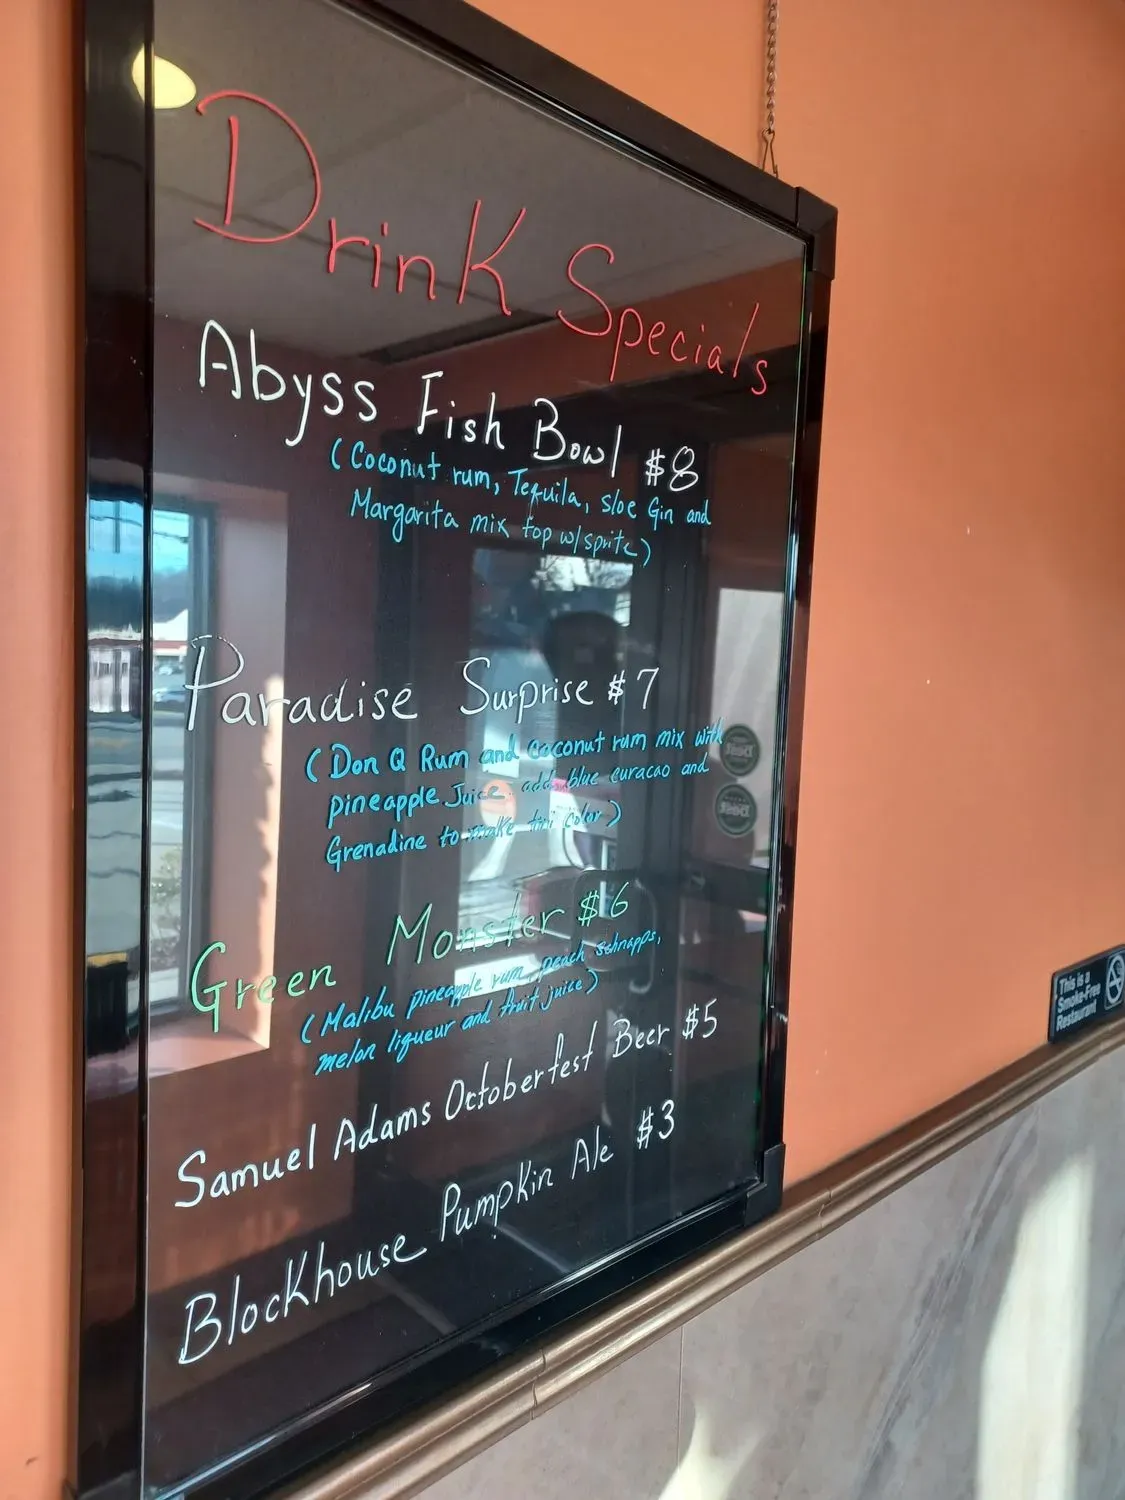 Drink Specials
Abyss Fish Bowl $8
(Coconut rum, Tequila, sloe Gin and
Margarita mix top w/sprite)
Paradise Surprise $7
(Don Q Rum and coconut rum mix with
pineapple Juice add blue curacao and
Grenadine to make tini color)
Green Monster $6
(Malibu pineapple rum, peach schnapps,
melon liqueur and fruit juice)
Samuel Adams Octoberfest Beer $5
Blockhouse Pumpkin Ale $3
This is a
Smoke-Free
Restaurant